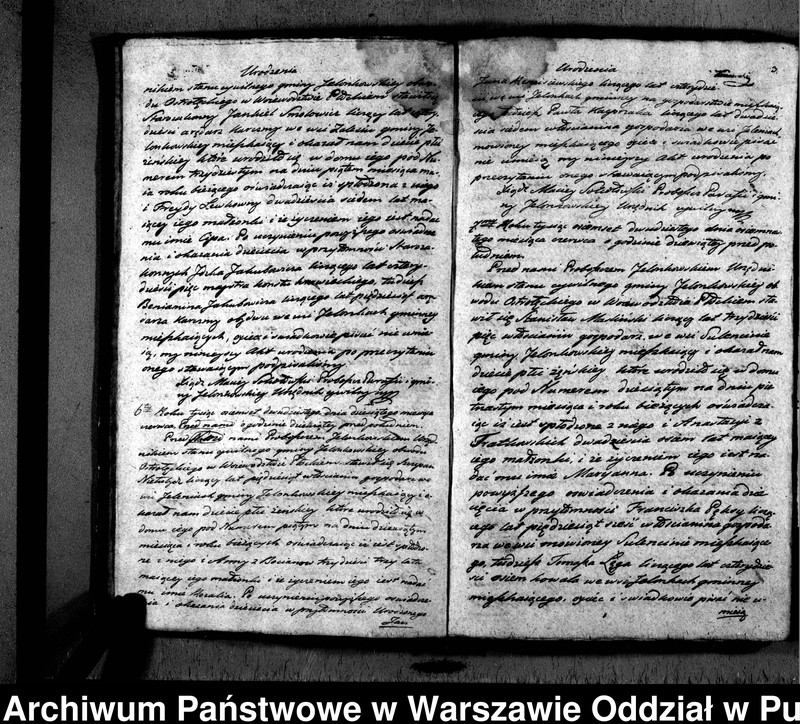 Urodzenia
nikiem stanu cywilnego gminy Jelonkowskiey obwo-
du Ostrołęckiego w Woiewództwie Płockiem stawił się
Starozakonny Jankiel liczący lat czter-
dzieści arędarz karczmy we wsi gminy Je-
lonkowskiey mieszkaiący i okazał nam dziecie płci
żeńskiey które urodziło się w domu iego pod Nu-
merem trzydziestym na dniu piątem miesiąca ma-
ia roku bieżącego oświadczaiąc iż spłodzone z niego
i Freydy dwadzieścia siedem lat ma-
iącey iego małżonki i iż życzeniem iego iest nadać
mu imie Cypa. Po uczynieniu powyższego oświadcze-
nia i okazania dziecięcia w przytomności Staroza-
konnych Jakubowicza liczącego lat cztery-
dzieści pięc maystra kunsztu krawieckiego, tudzież
Beniamina Jakubowicza liczącego lat pięćdziesiąt arę-
darza karczmy obydwu we wsi Jelonkach gminney
mieszkaiących, oyciec i świadkowie pisać nie umie-
ią, my ninieyszy Akt urodzenia po przeczytaniu
onego stawaiącym podpisaliśmy
Xiądz Maciey Sokołowski Proboszcz Parafii i gmi-
ny Jelonkowskiey Urzędnik cywilny
6te Roku tysiąc osmset dwudziestego dnia dziewiątego miesiąca
czerwca o godzinie dziesiątey przed południem.
Przed nami Proboszczem Jelonkowskiem Urzęd-
nikiem stanu cywilnego gminy Jelonkowskiey obwodu
Ostrołęckiego w Woiewództwie Płockiem stawił się Szczepan
liczący lat pięćdziesiąt włościanin gospodarz we
wsi Jelonkach gminy Jelonkowskiey mieszkaiący i o-
kazał nam dziecie płci żenskiey które urodziło się w
domu iego pod Numerem piątym na dniu dziewiątym
miesiąca i roku bieżących oświadczaiąc iż iest spłodzo-
ne z niego i Anny z Bocianow trzydzieści trzy lata
maiącey iego małżonki i iż życzeniem iego iest nadać
mu imie Rozalia. Po uczynieniu powyższego oświadcze-
nia i okazania dziecięcia w przytomności Urodzonego
Jan
Urodzenia
3.
Jana liczącego lat czterydzie-
ści, we wsi Jelonkach gminney na gospodarstwie mieszkaią-
cego tudzież Pawła liczącego lat dwadzie-
ścia siedem włościanina gospodarza we wsi Jelonkach
mowioney mieszkaiącego oyciec i świadkowie pisać
nie umieią my ninieyszy Akt urodzenia po
przeczytaniu onego stawaiącym podpisaliśmy.
Xiądz Maciey Sokołowski Proboszcz Parafii i gmi-
ny Jelonkowskiey Urzędnik cywilny
7me Roku tysiąc osmset dwudziestego dnia osmna-
stego miesiąca czerwca o godzinie dziewiątey przed po-
łudniem.
Przed nami Proboszczem Jelonkowskiem Urzędni-
kiem stanu cywilnego gminy Jelonkowskiey ob-
wodu Ostrołęckiego w Woiewództwie Płockiem sta-
wił się Stanisław liczący lat trzydzieści
pięć włościanin gospodarz we wsi Sulencinie
gminy Jelonkowskiey mieszkaiący i okazał nam
dziecie płci żeńskiey które urodziło się w domu
iego pod Numerem dziesiątym na dniu pię-
tnastym miesiąca i roku bieżących oświadcza-
iąc iż iest spłodzone z niego i Anastazyi z
dwadzieścia osiem lat maiącey
iego małżonki, i iż życzeniem iego iest na-
dać mu imie Maryanna. Po uczynieniu
powyższego oświadczenia i okazania dzie-
cięcia w przytomności Franciszka liczą-
cego lat pięćdziesiąt sześć włościanina gospoda-
rza we wsi mowioney Sulencinie mieszkaiące-
go, tudzież liczącego lat czterydzie-
ści osiem kowala we wsi Jelonkach gminney
mieszkaiącego, oyciec i świadkowie pisać nie u-
mieią
Archiwum Państwowe w Warszawie Oddział w Pu